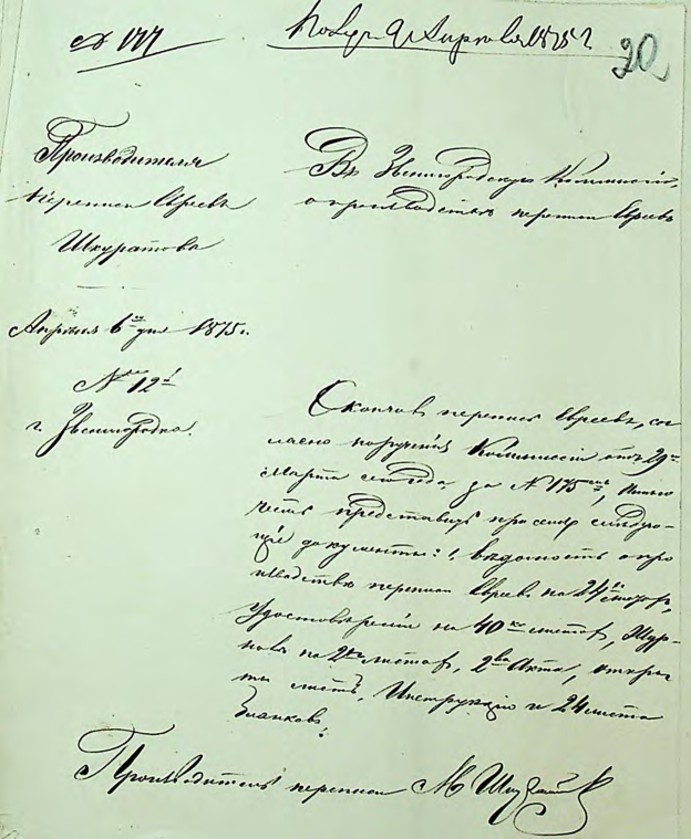 № 177
Получ. 9 Апреля 1875 г.
20
Производителя
переписи Евреевъ
Шкуратова
Апреля 6го дня 1875 г.
№ 12й
г. Звенигородка.
Въ Звенигородскую Коммисію,
о производствѣ переписи Евреевъ
Окончивъ перепись Евреевъ, сог
ласно порученія Коммиссіи отъ 29го
Марта сего года за № 175мъ, имѣю
честь представить при семъ слѣдую-
щіе документы: вѣдомость о про
изводствѣ переписи Евреевъ на 24хъ листахъ,
Удостовѣреніи на 40 листахъ, Жур-
налъ на 2хъ листахъ, 2ва Акта, откры
тый листъ, Инструкцію и 24 листа
бланковъ.
Производитель переписи М Шкуратовъ